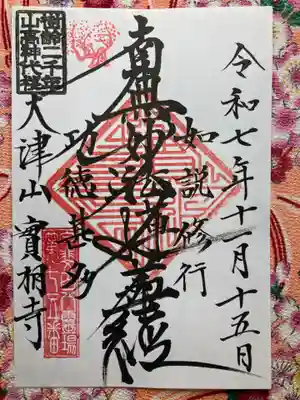 令和七年十一月十五日
如説修行
南無妙法蓮華経
功徳甚多
樹齢二千年
山高神代桜
大津山 實相寺